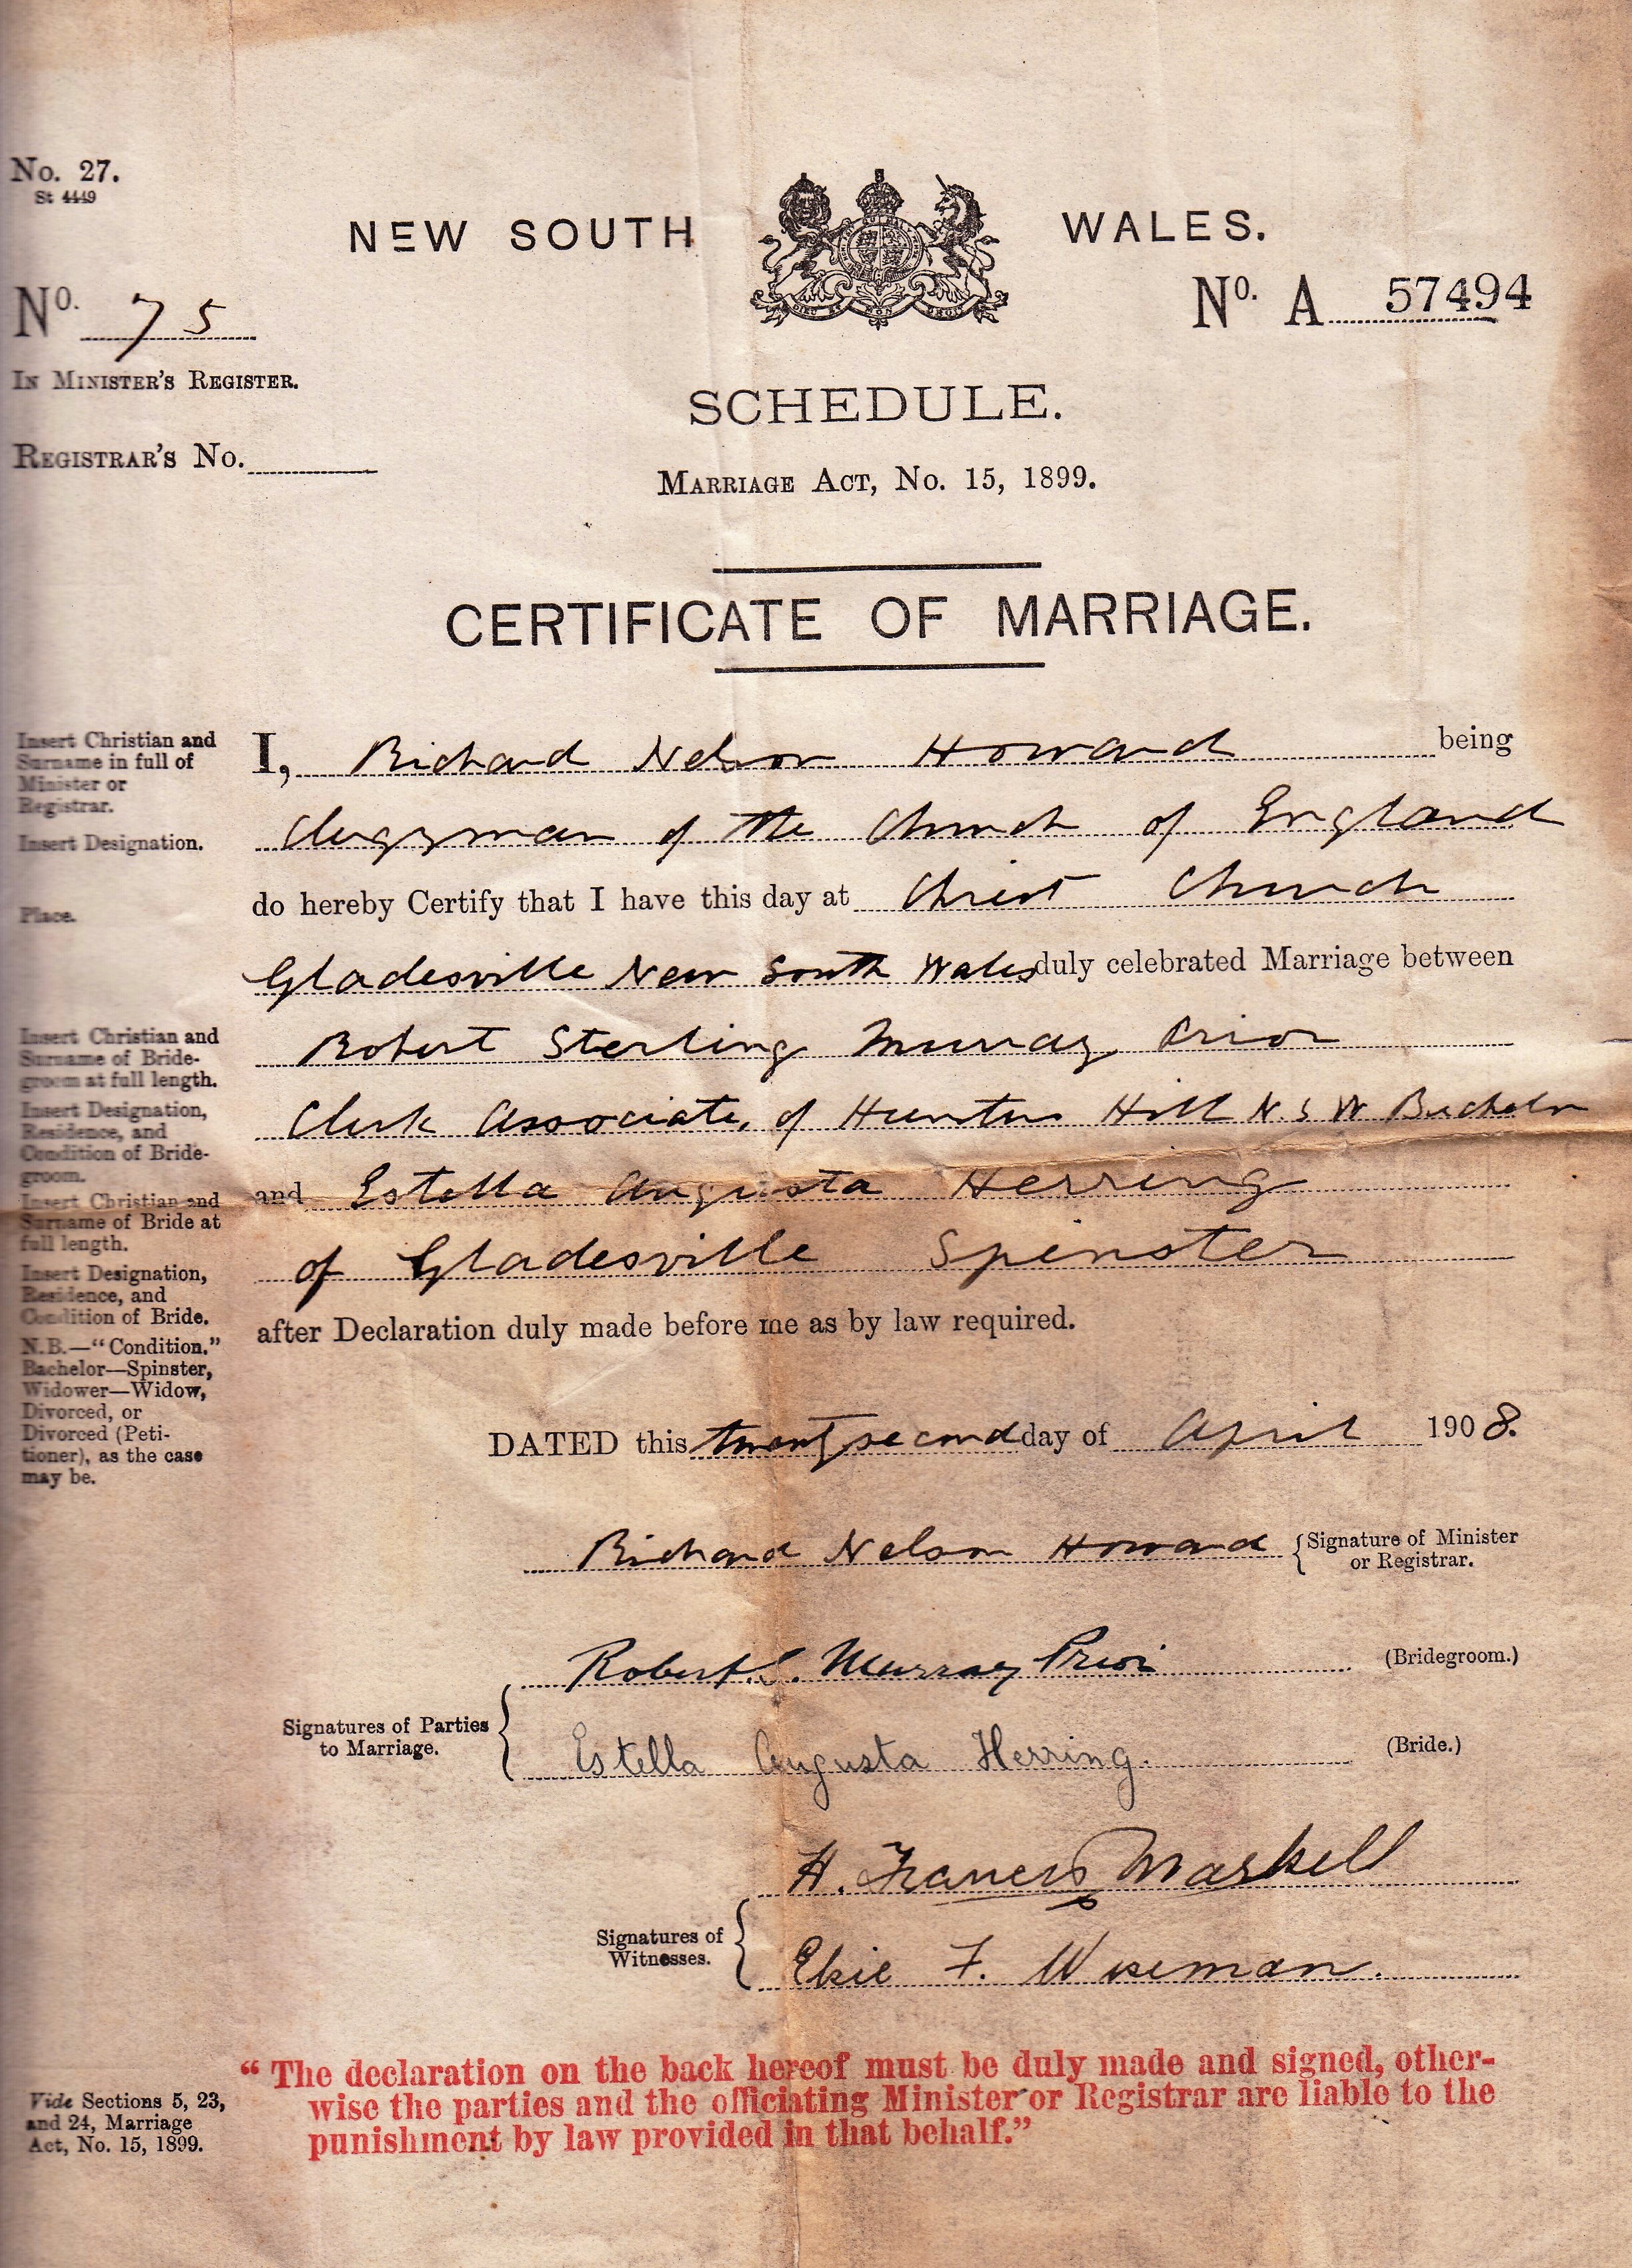 No. 27.
St 4449
NEW SOUTH WALES.
No. 75
No. A 57494
IN MINISTER'S REGISTER.
SCHEDULE.
REGISTRAR'S No.
MARRIAGE ACT, No. 15, 1899.
CERTIFICATE OF MARRIAGE.
Insert Christian and
Surname in full of
Minister or
Registrar.
I, Richard Nelson Howard being
Insert Designation.
Clergyman of the Church of England
Place.
do hereby Certify that I have this day at Christ Church
Gladesville New South Wales duly celebrated Marriage between
Insert Christian and
Surname of Bride-
groom at full length.
Robert Sterling Murray Prior
Insert Designation,
Residence, and
Condition of Bride-
groom.
Clerk Associate, of Hunters Hill N.S.W Bachelor
Insert Christian and
Surname of Bride at
full length.
and Estella Augusta Herring
Insert Designation,
Residence, and
Condition of Bride.
of Gladesville Spinster
N.B.—"Condition."
Bachelor—Spinster,
Widower—Widow,
Divorced, or
Divorced (Peti-
tioner), as the case
may be.
after Declaration duly made before me as by law required.
DATED this twenty second day of April 1908.
Richard Nelson Howard { Signature of Minister
or Registrar.
Robert S. Murray Prior (Bridegroom.)
Signatures of Parties
to Marriage.
Estella Augusta Herring. (Bride.)
H. Francis Maskell
Signatures of
Witnesses.
Elsie F. Wiseman.
"The declaration on the back hereof must be duly made and signed, other-
wise the parties and the officiating Minister or Registrar are liable to the
punishment by law provided in that behalf."
Vide Sections 5, 23,
and 24, Marriage
Act, No. 15, 1899.